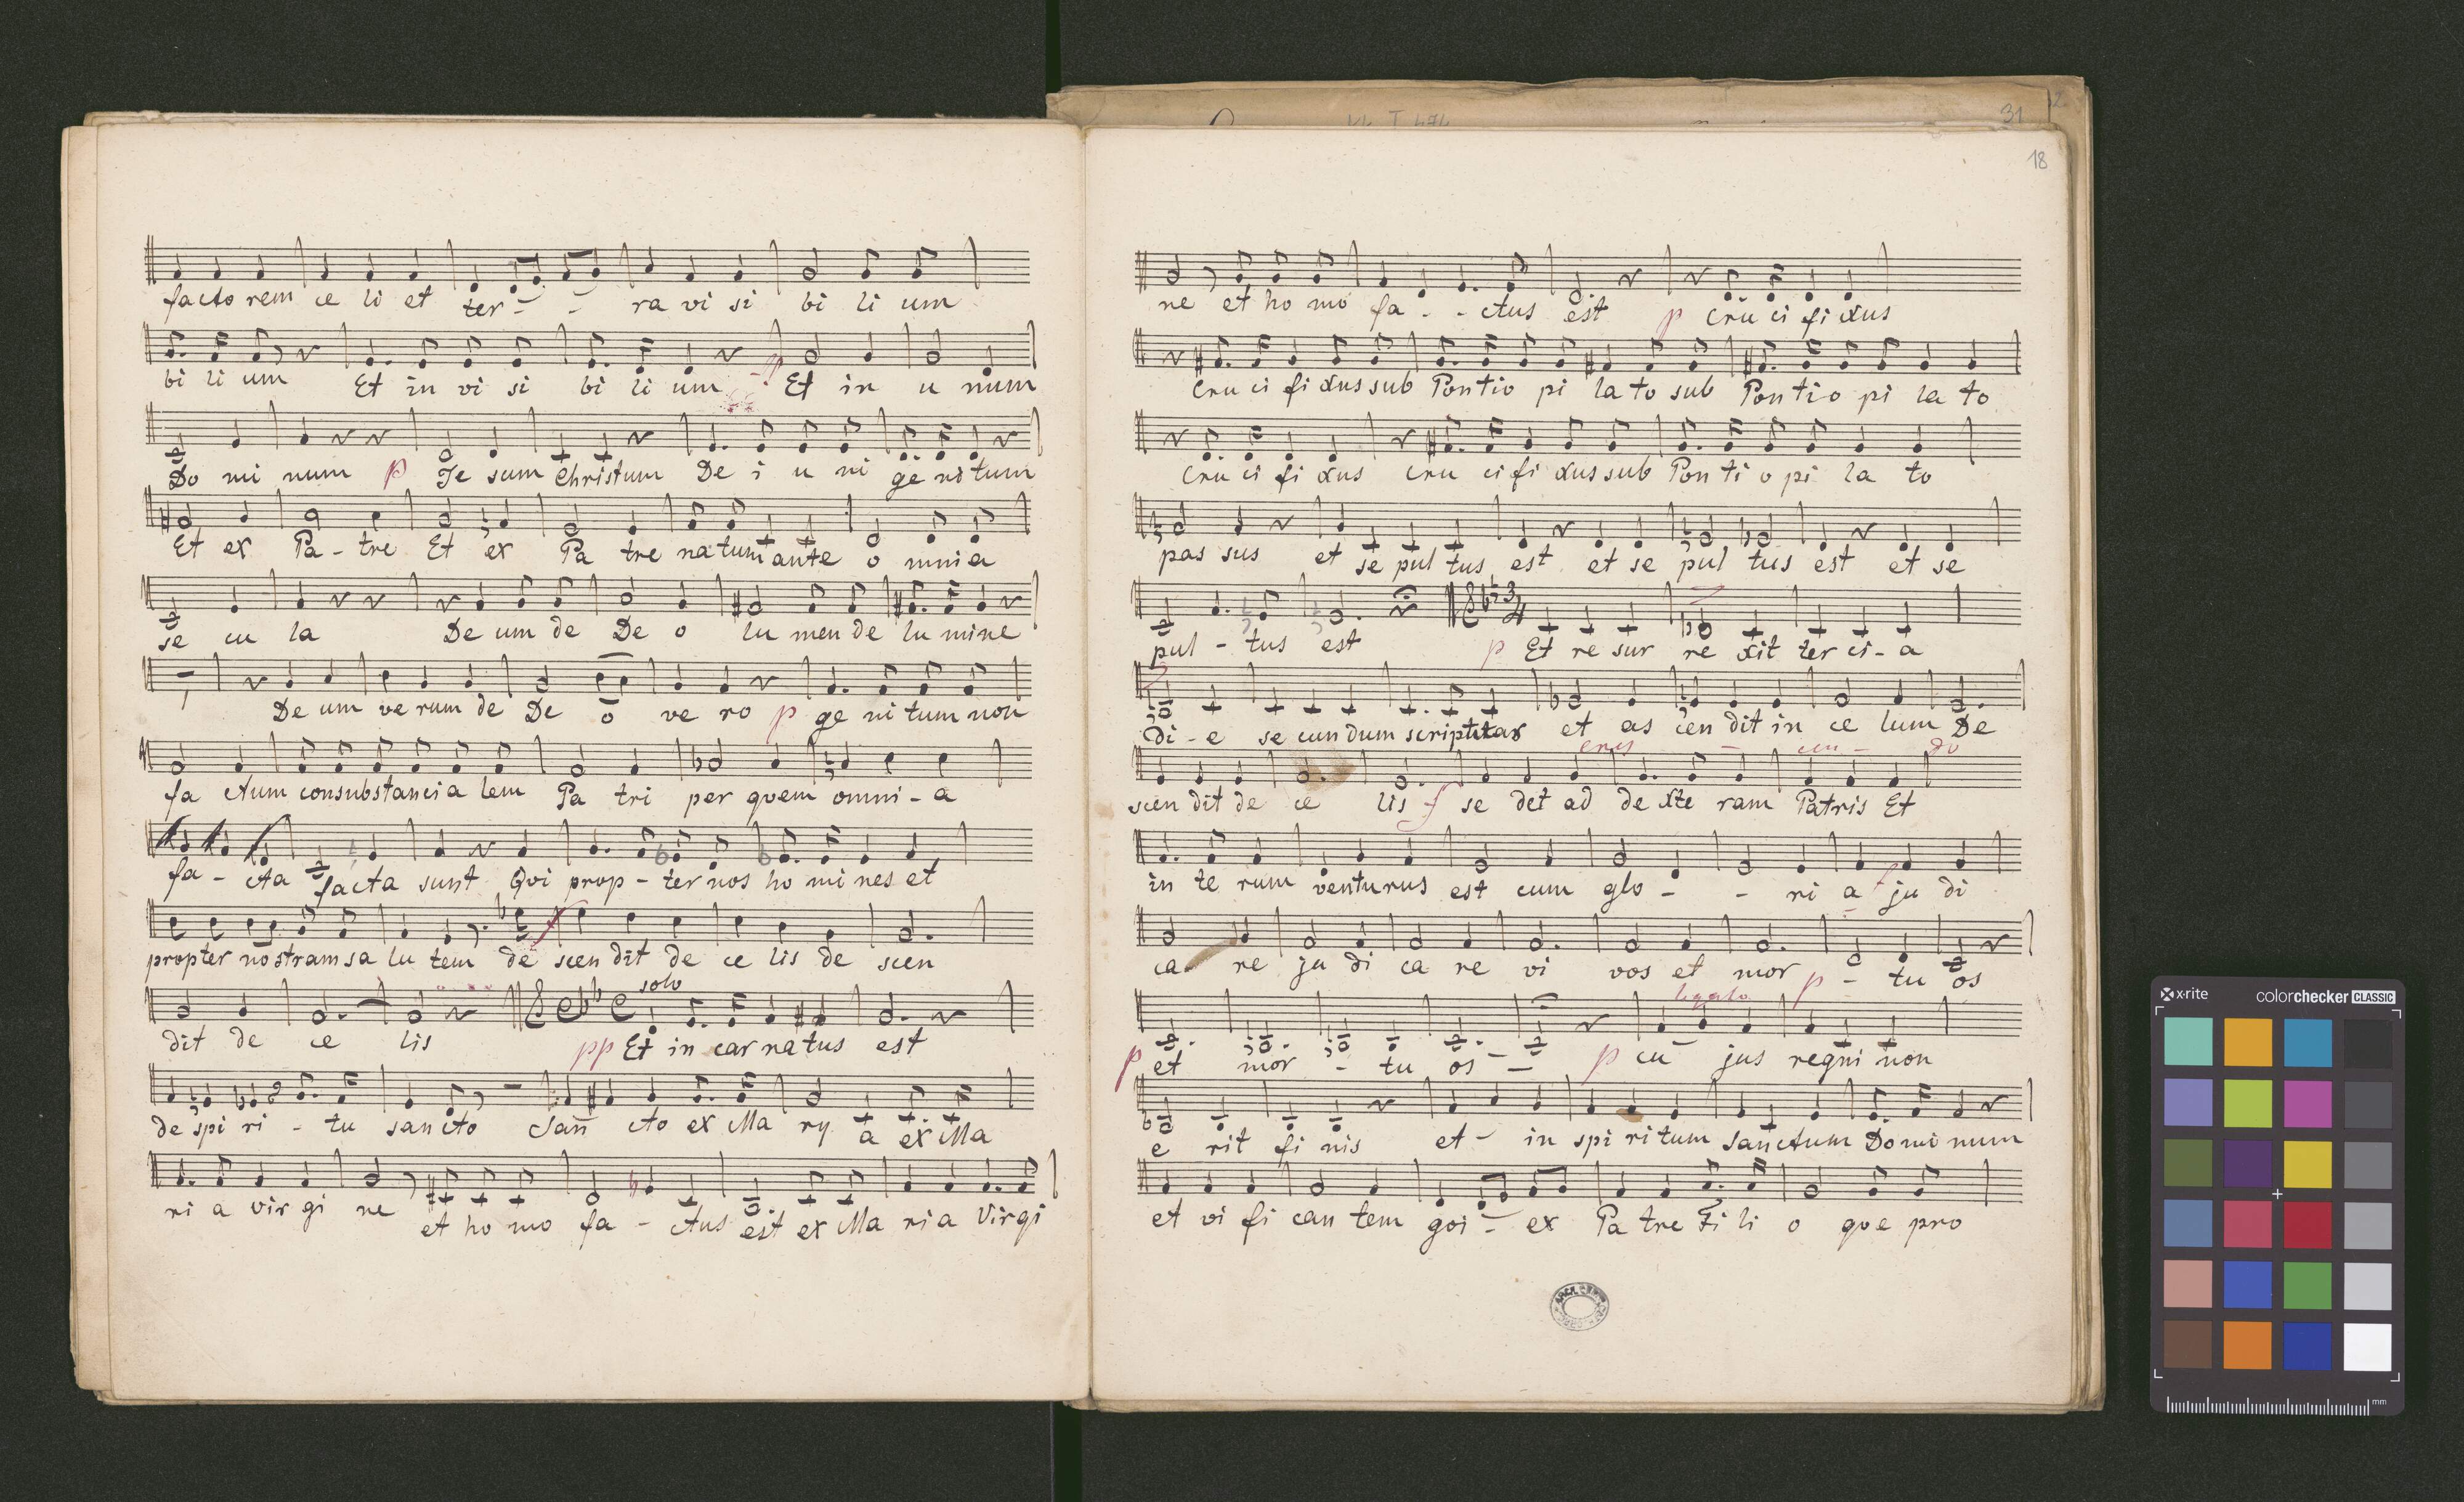 facto rem ce li et ter - - ra vi si bi li um
bi li um Et in vi si bi li um pp Et in u num
Do mi num p Je sum Christum De i u ni ge ni tum
Et ex Pa - tre Et ex Pa tre natum ante o mnia
se cu la De um de De o lu men de lu mine
De um ve rum de De o ve ro p ge ni tum non
fa ctum consubstancia lem Pa tri per qvem omni - a
fa - cta facta sunt Qvi prop - ter nos ho mi nes et
propter nostram sa lu tem de f scen dit de ce lis de scen
solo
dit de ce lis pp Et in car na tus est
de spi ri - tu san cto San cto ex Ma ry a ex Ma
ri a vir gi ne et ho mo fa - ctus est ex Ma ri a Virgi
31
18
ne et ho mo fa - - ctus est p Cru ci fi xus
Cru ci fi xus sub Pontio pi la to sub Pon ti o pi la to
Cru ci fi xus cru ci fi xus sub Pon ti o pi la to
pas sus et se pul tus est et se pul tus est et se
3/4
pul - tus est p Et re sur re xit ter ci - a
di - e se cundum scripturas et as cen dit in ce lum De
cres - cen - do
scen dit de ce lis f se det ad de xte ram Patris Et
in te rum venturus est cum glo - - ri a f ju di
ca re ju di ca re vi vos et mor p - tu os
legato
p et mor - tu os - p cu jus regni non
e rit fi nis et - in spi ritum sanctum Do mi num
et vi fi can tem qoi - ex Pa tre Fi li o qve pro
x-rite colorchecker CLASSIC
mm